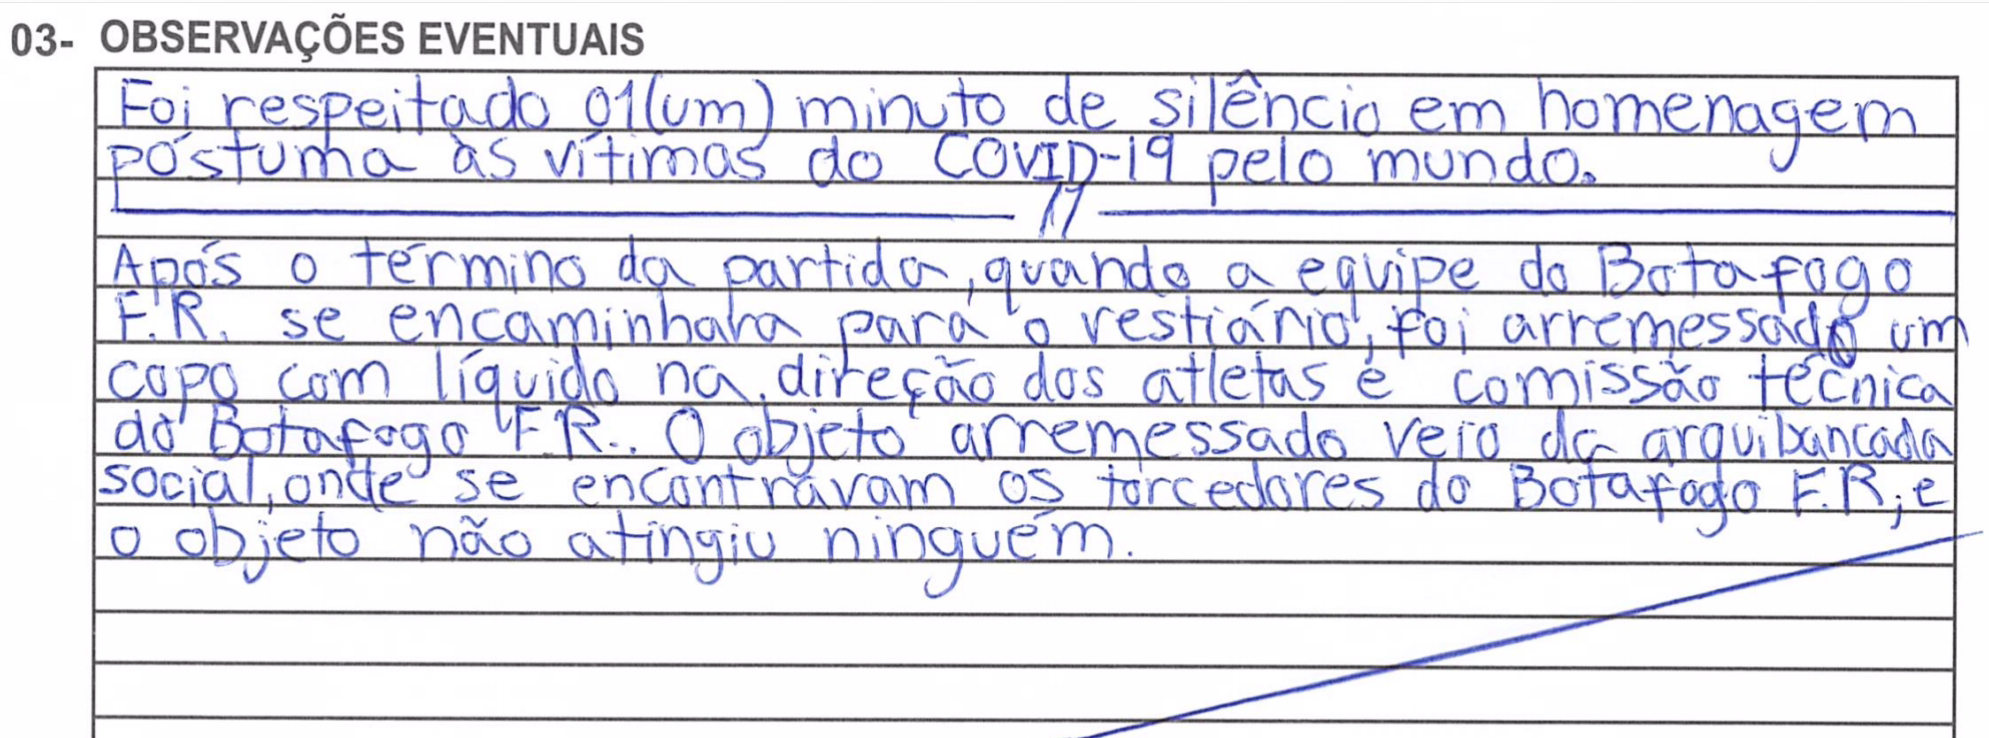 03- OBSERVAÇÕES EVENTUAIS
Foi respeitado 01(um) minuto de silêncio em homenagem
póstuma às vítimas do COVID-19 pelo mundo.
//
Após o término da partida, quando a equipe do Botafogo
F.R. se encaminhava para o vestiário, foi arremessado um
copo com líquido na direção dos atletas e comissão técnica
do Botafogo F.R.. O objeto arremessado veio da arquibancada
social, onde se encontravam os torcedores do Botafogo F.R; e
o objeto não atingiu ninguém.